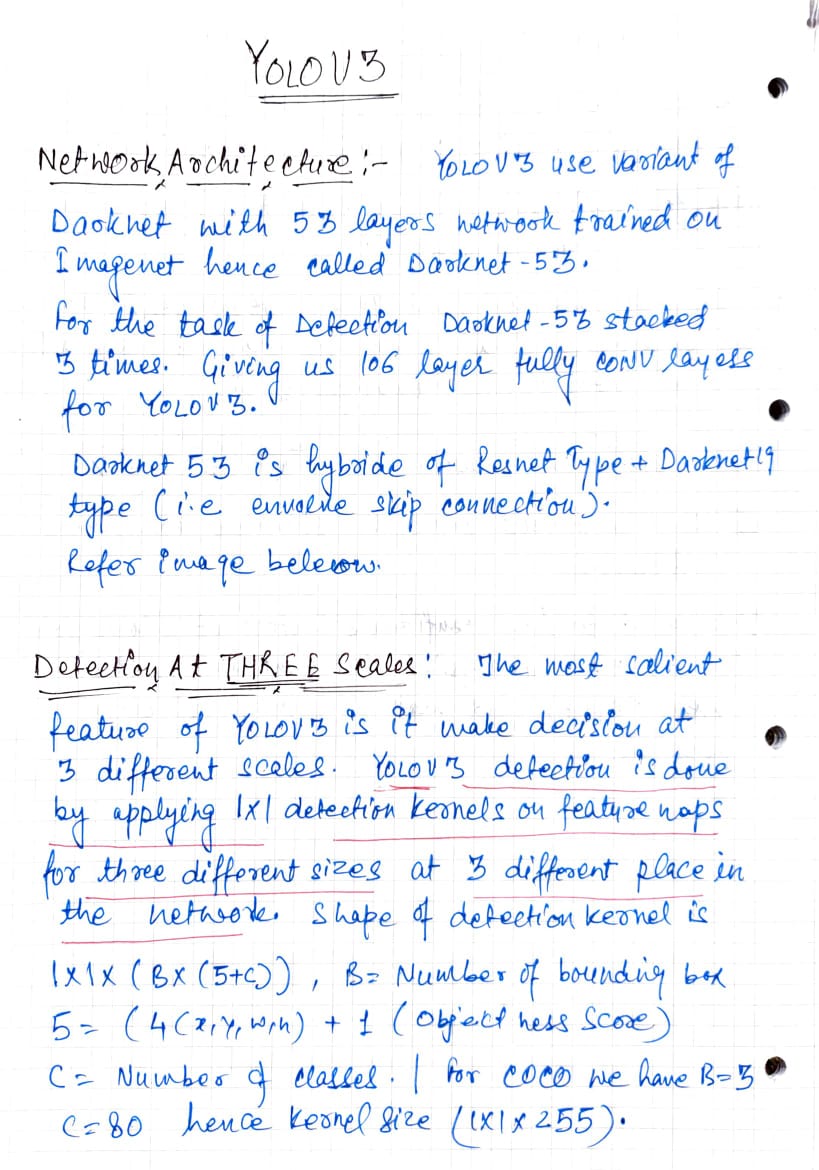 YOLOV3
Network Architecture :- YOLOV3 use variant of
Darknet with 53 layers network trained on
Imagenet hence called Darknet-53.
For the task of Detection Darknet-53 stacked
3 times. Giving us 106 layer fully CONV layers
for YOLOV3.
Darknet 53 is hybride of Resnet Type + Darknet19
type (i.e envolve skip connection).
Refer image below.
Detection At THREE Scales: The most salient
feature of YOLOV3 is it make decision at
3 different scales. YOLOV3 detection is done
by applying 1x1 detection kernels on feature maps
for three different sizes at 3 different place in
the network. Shape of detection kernel is
1x1x (Bx (5+C)), B= Number of bounding box
5= (4(x,y,w,h) + 1 (Object ness Score)
C= Number of classes. | For COCO we have B=3
C=80 hence kernel size (1x1x255).